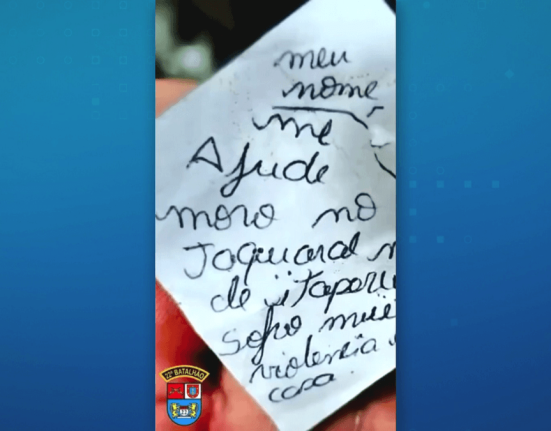 meu
nome
me
Ajude
moro no
Jaquaral
de itaperu
sofro
violencia
casa.
22º BATALHÃO